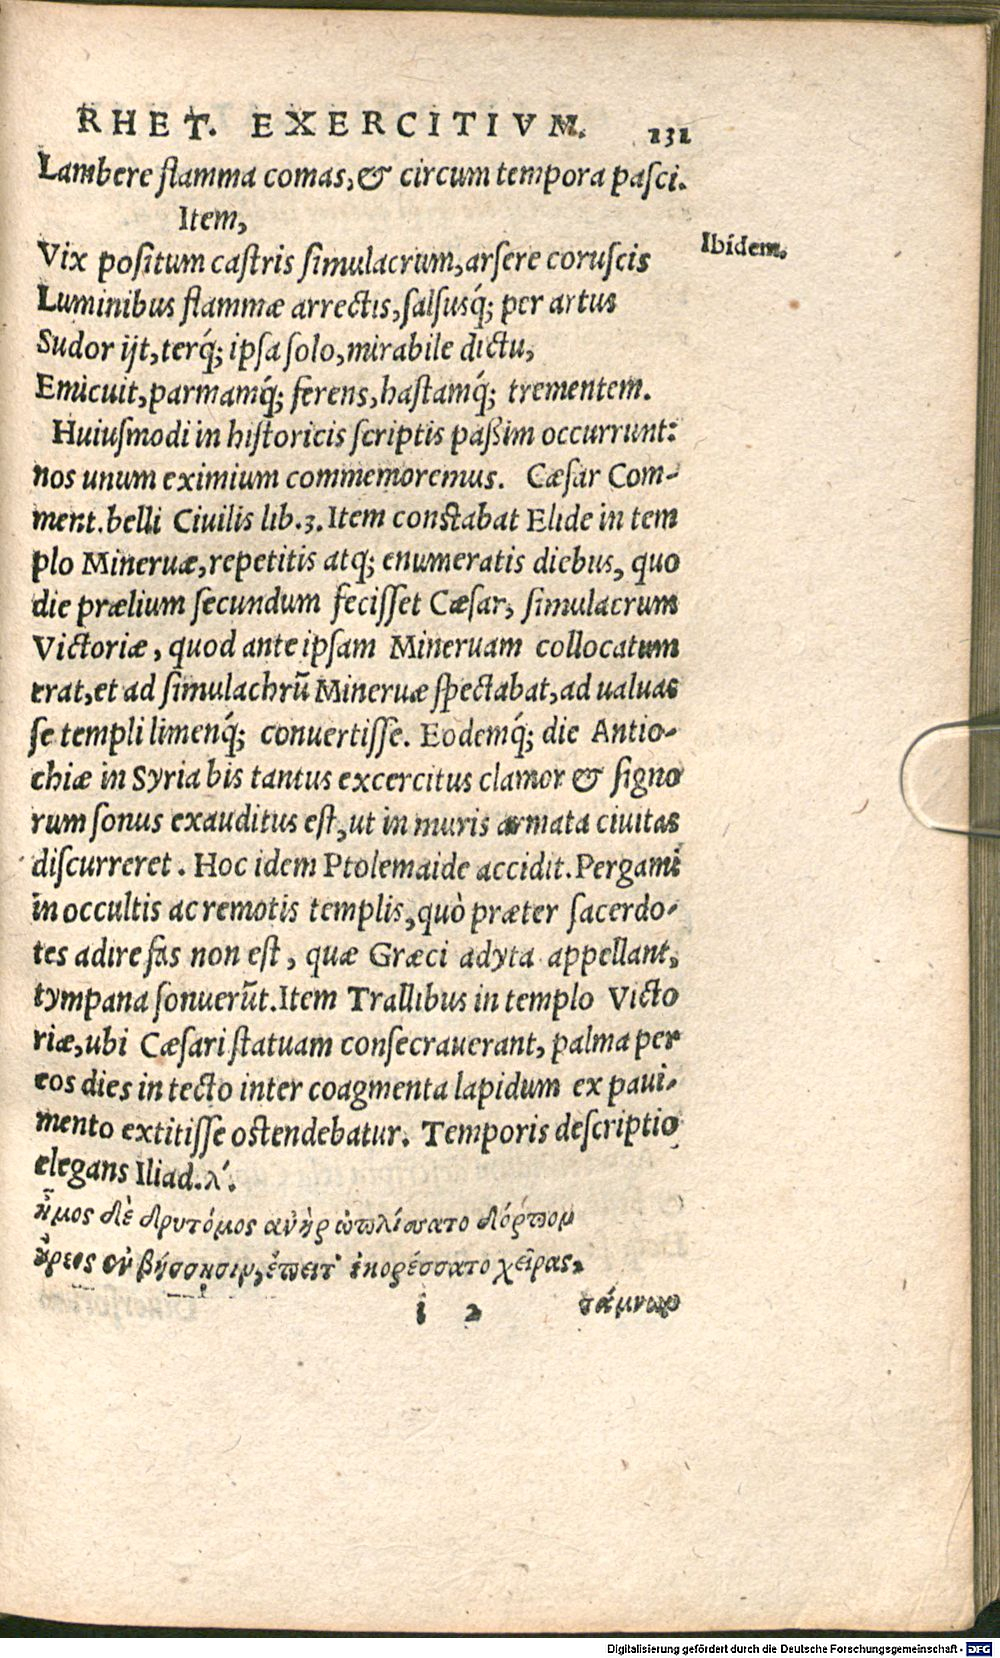 RHET. EXERCITIVM. 131
Lambere flamma comas, & circum tempora pasci.
Item,
Ibidem.
Vix positum castris simulacrum, arsere coruscis
Luminibus flammæ arrectis, salsusq́; per artus
Sudor ijt, terq́; ipsa solo, mirabile dictu,
Emicuit, parmamq́; ferens, hastamq́; trementem.
Huiusmodi in historicis scriptis paßim occurrunt:
nos unum eximium commemoremus. Cæsar Com-
ment. belli Ciuilis lib. 3. Item constabat Elide in tem
plo Mineruæ, repetitis atq; enumeratis diebus, quo
die prælium secundum fecisset Cæsar, simulacrum
Victoriæ, quod ante ipsam Mineruam collocatum
erat, et ad simulachrū Mineruæ spectabat, ad ualuas
se templi limenq́; conuertisse. Eodemq́; die Antio-
chiæ in Syria bis tantus excercitus clamor & signo
rum sonus exauditus est, ut in muris armata ciuitas
discurreret. Hoc idem Ptolemaide accidit. Pergami
in occultis ac remotis templis, quò præter sacerdo-
tes adire fas non est, quæ Græci adyta appellant,
tympana sonuerūt. Item Trallibus in templo Victo
riæ, ubi Cæsari statuam consecrauerant, palma per
eos dies in tecto inter coagmenta lapidum ex paui-
mento extitisse ostendebatur. Temporis descriptio
elegans Iliad. λ'.
ἦμος δὲ δρυτόμος ἀνὴρ ὡπλίσσατο δόρπον
ὄρεος ἐν βήσσῃσιν, ἐπειτ' ἐκορέσσατο χεῖρας,
i 2 τάμνων
Digitalisierung gefördert durch die Deutsche Forschungsgemeinschaft - DFG